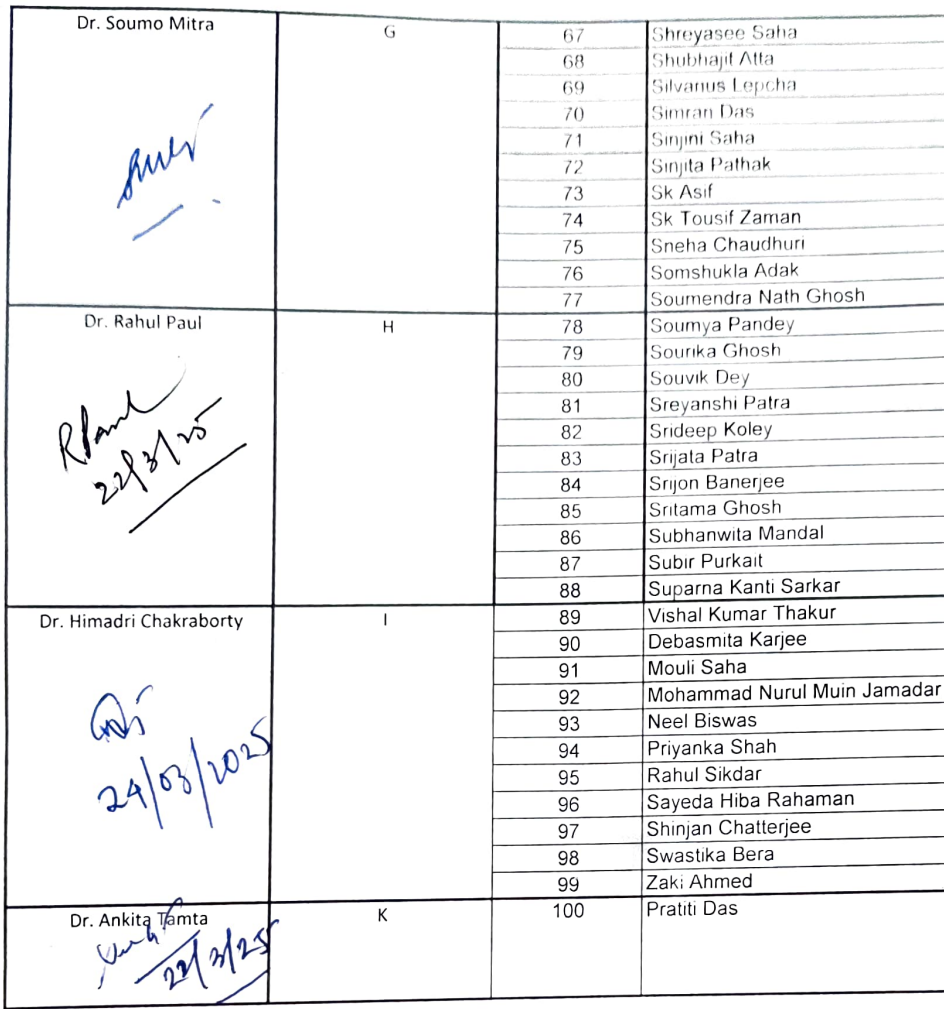 Dr. Soumo Mitra G 67 Shreyasee Saha
68 Shubhajit Atta
69 Silvanus Lepcha
70 Simran Das
71 Sinjini Saha
72 Sinjita Pathak
73 Sk Asif
74 Sk Tousif Zaman
75 Sneha Chaudhuri
76 Somshukla Adak
77 Soumendra Nath Ghosh
Dr. Rahul Paul H 78 Soumya Pandey
79 Sourika Ghosh
80 Souvik Dey
81 Sreyanshi Patra
82 Srideep Koley
83 Srijata Patra
84 Srijon Banerjee
85 Sritama Ghosh
86 Subhanwita Mandal
87 Subir Purkait
88 Suparna Kanti Sarkar
RPaul
22/3/25
Dr. Himadri Chakraborty I 89 Vishal Kumar Thakur
90 Debasmita Karjee
91 Mouli Saha
92 Mohammad Nurul Muin Jamadar
93 Neel Biswas
94 Priyanka Shah
95 Rahul Sikdar
96 Sayeda Hiba Rahaman
97 Shinjan Chatterjee
98 Swastika Bera
99 Zaki Ahmed
24/03/2025
Dr. Ankita Tamta K 100 Pratiti Das
22/3/25